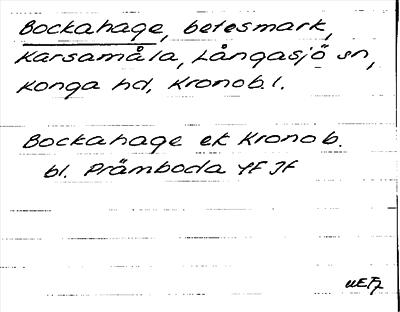 Bockahage, betesmark,
Karsamåla, Långasjö sn,
Konga hd, Kronob. l.
Bockahage ek Kronob.
bl. Prämboda YF JF